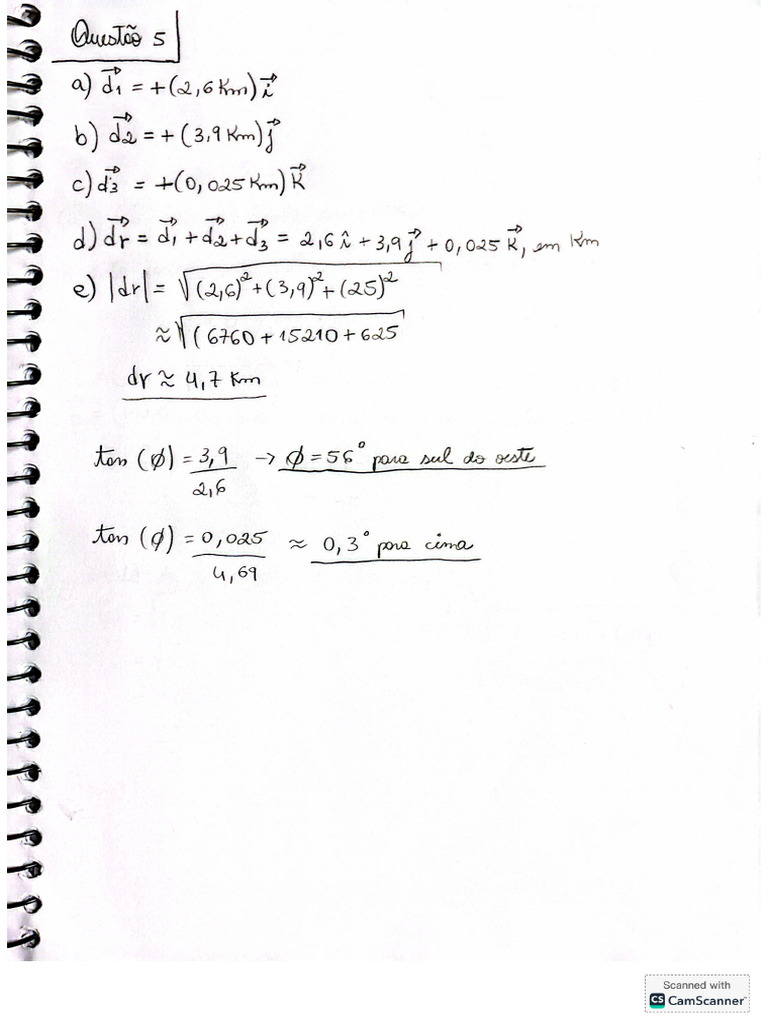 Questão 5
a) d⃗1 = +(2,6 Km) i⃗
b) d⃗2 = + (3,9 Km) j⃗
c) d⃗3 = +(0,025 Km) K⃗
d) d⃗r = d⃗1 + d⃗2 + d⃗3 = 2,6 î + 3,9 j⃗ + 0,025 K⃗, em Km
e) |dr| = √(2,6)² + (3,9)² + (25)²
≈ √( 6760 + 15210 + 625
dr ≈ 4,7 Km
tan (φ) = 3,9/2,6 → φ = 56° para sul do oeste
tan (φ) = 0,025/4,69 ≈ 0,3° para cima
Scanned with
CS CamScanner